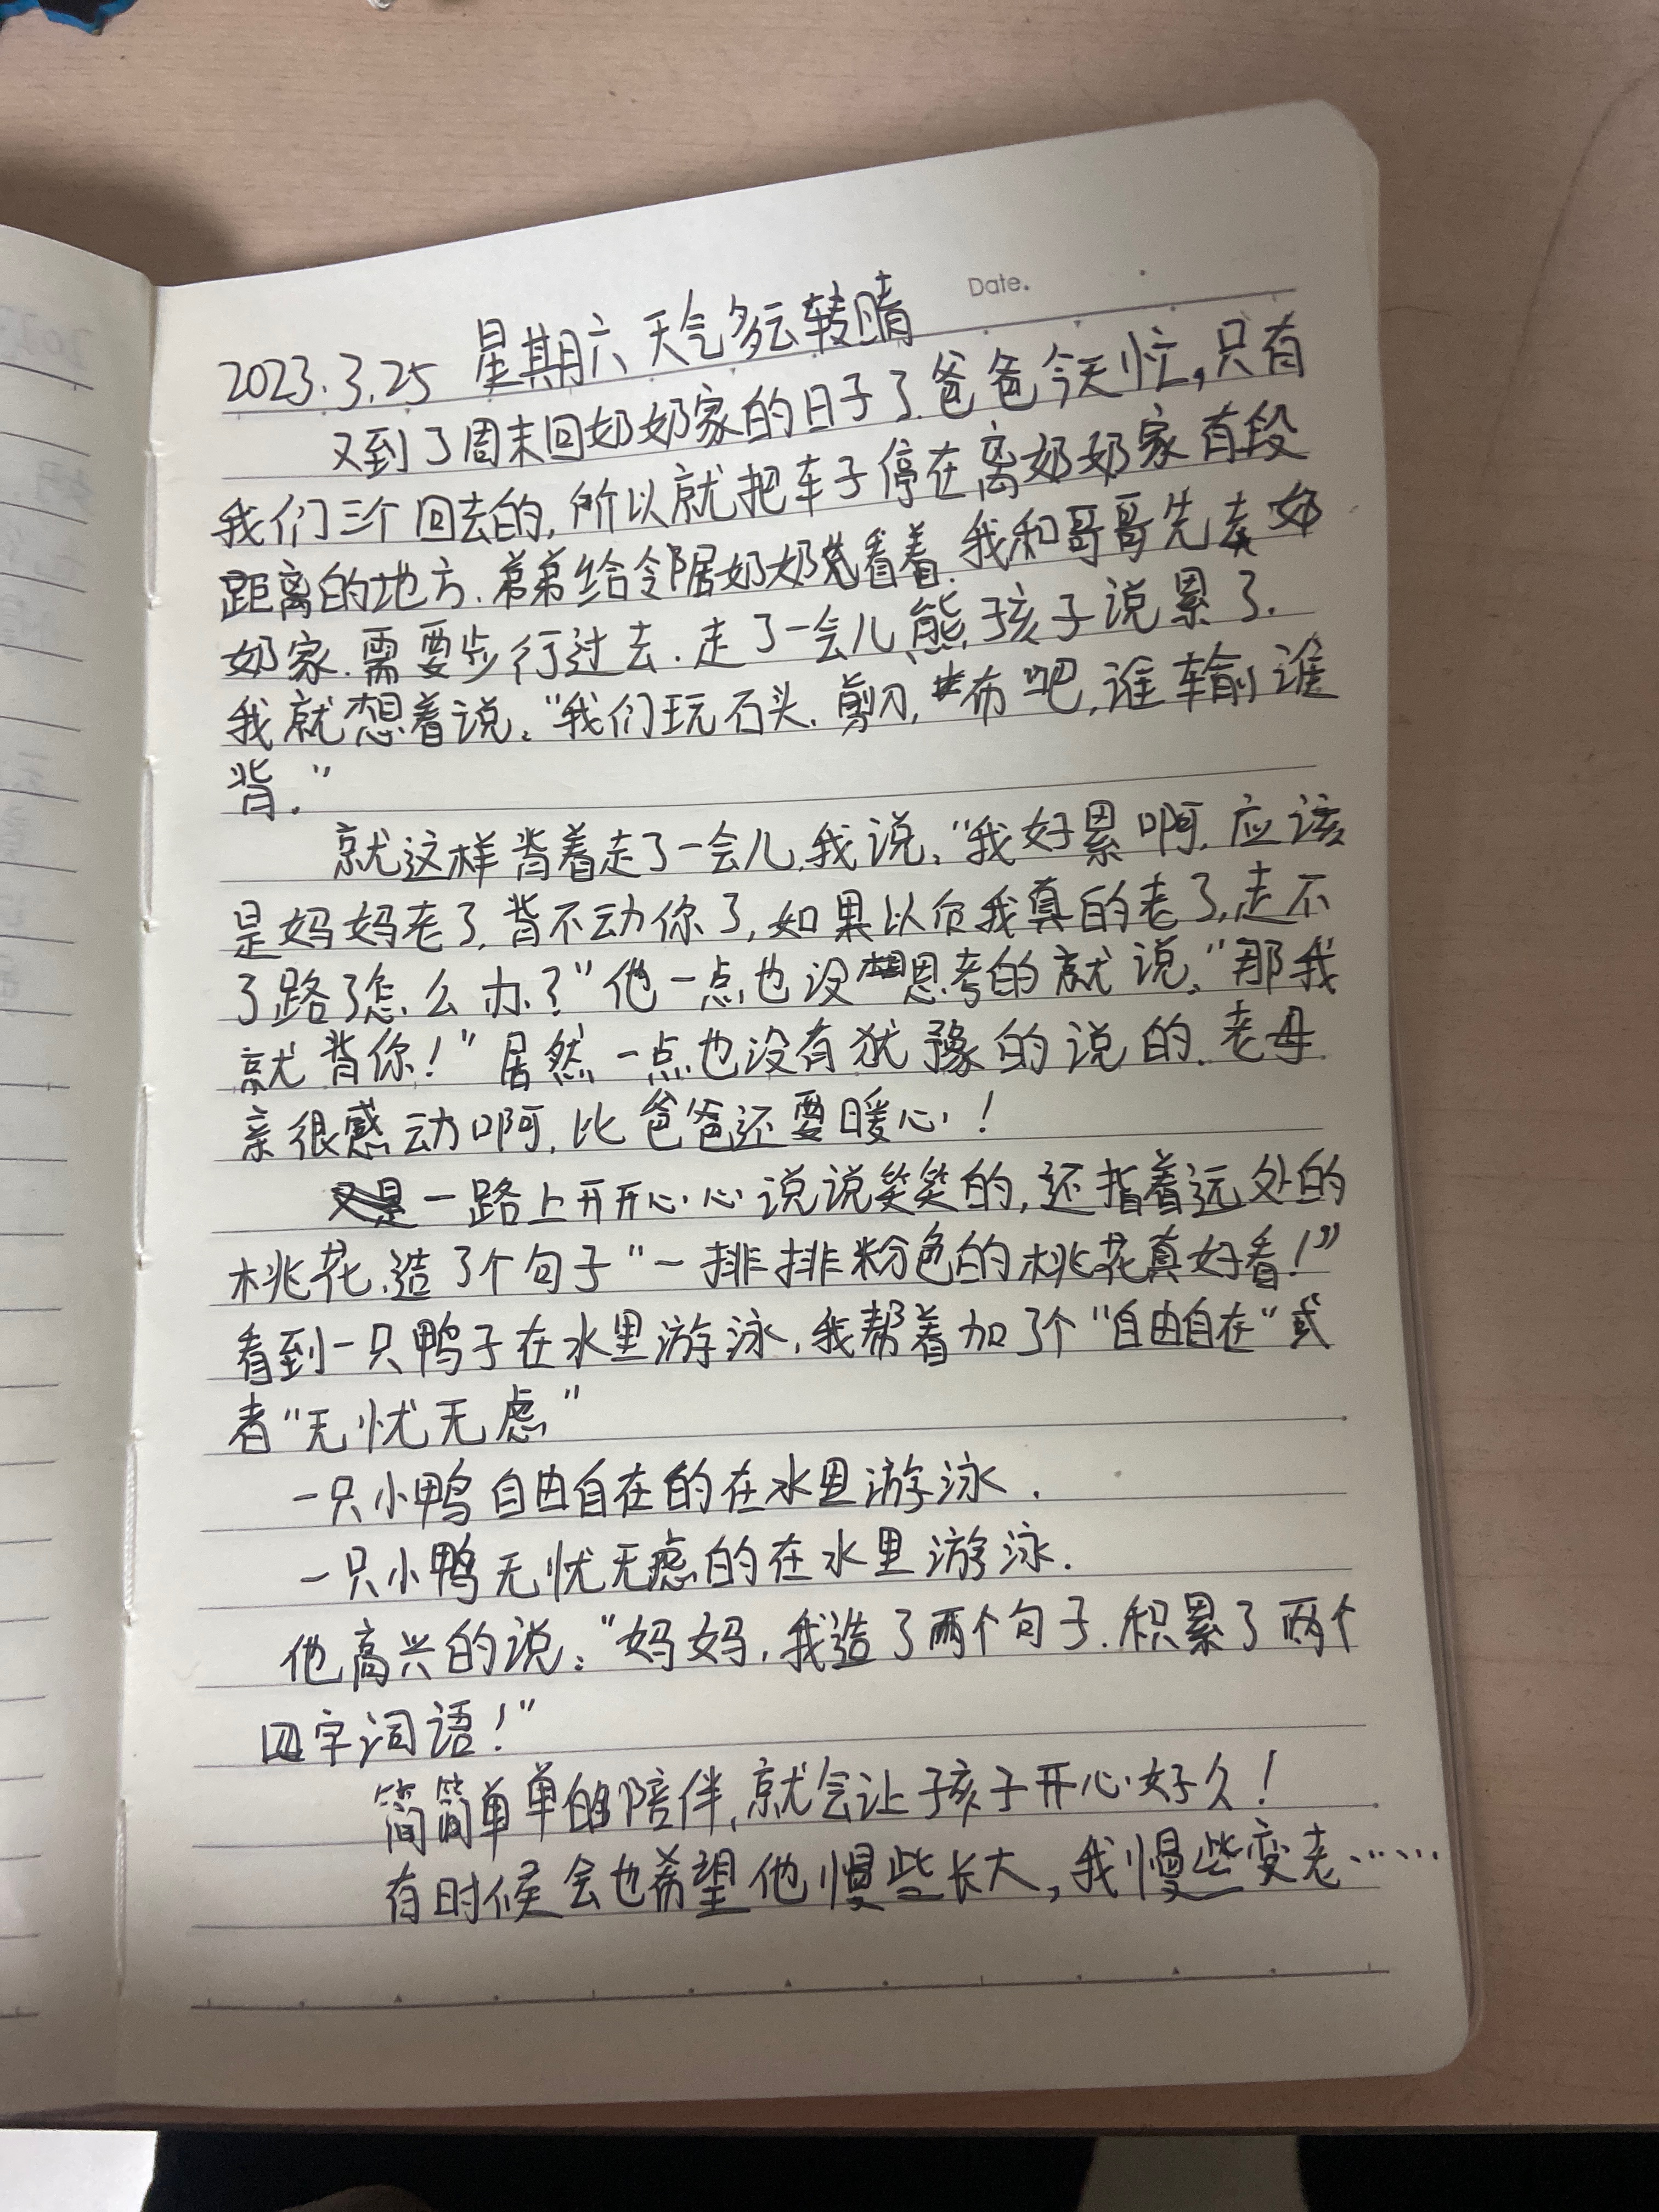 Date.
2023.3.25 星期六 天气多云转晴
又到了周末回奶奶家的日子了.爸爸今天忙,只有
我们三个回去的,所以就把车子停在离奶奶家有段
距离的地方.弟弟给邻居奶奶看着.我和哥哥先去奶
奶家.需要步行过去.走了一会儿熊孩子说累了.
我就想着说:"我们玩石头.剪刀,布吧,谁输谁
背."
就这样背着走了一会儿,我说:"我好累啊,应该
是妈妈老了,背不动你了,如果以后我真的老了,走不
了路了怎么办?"他一点也没思考的就说:"那我
就背你!"居然一点也没有犹豫的说的.老母
亲很感动啊,比爸爸还要暖心!
一路上开开心心说说笑笑的,还指着远处的
桃花.造了个句子"一排排粉色的桃花真好看!"
看到一只鸭子在水里游泳,我帮着加了个"自由自在"或
者"无忧无虑"
一只小鸭自由自在的在水里游泳.
一只小鸭无忧无虑的在水里游泳.
他高兴的说:"妈妈,我造了两个句子.积累了两个
四字词语!"
简简单单的陪伴,就会让孩子开心好久!
有时候会也希望他慢些长大,我慢些变老……